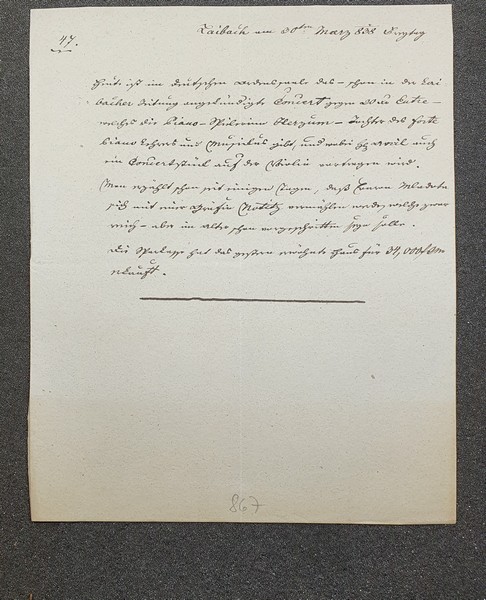 47.
Laibach am 30ten März 838 Freytag
Heute ist im deutschen Ordenssaale das – schon in der Lai
bacher Zeitung angekündigte Concert gegen 20 xr Entre –
welches die Piano-Spielerin Herzum – Tochter des forte
piano Lehrers und Musikus gibt, und wobei auch
ein Concertstück auf der Violin vortragen wird.
Man erzählt schon seit einigen Tagen, daß Baron Mladota
sich mit einer Gräfin Nostitz vermählen werde, welche zwar
reich – aber im Alter schon vorgeschritten seyn solle.
Die Sparkasse hat das gestern erwähnte Haus für 34,000 f CM
erkauft.
867